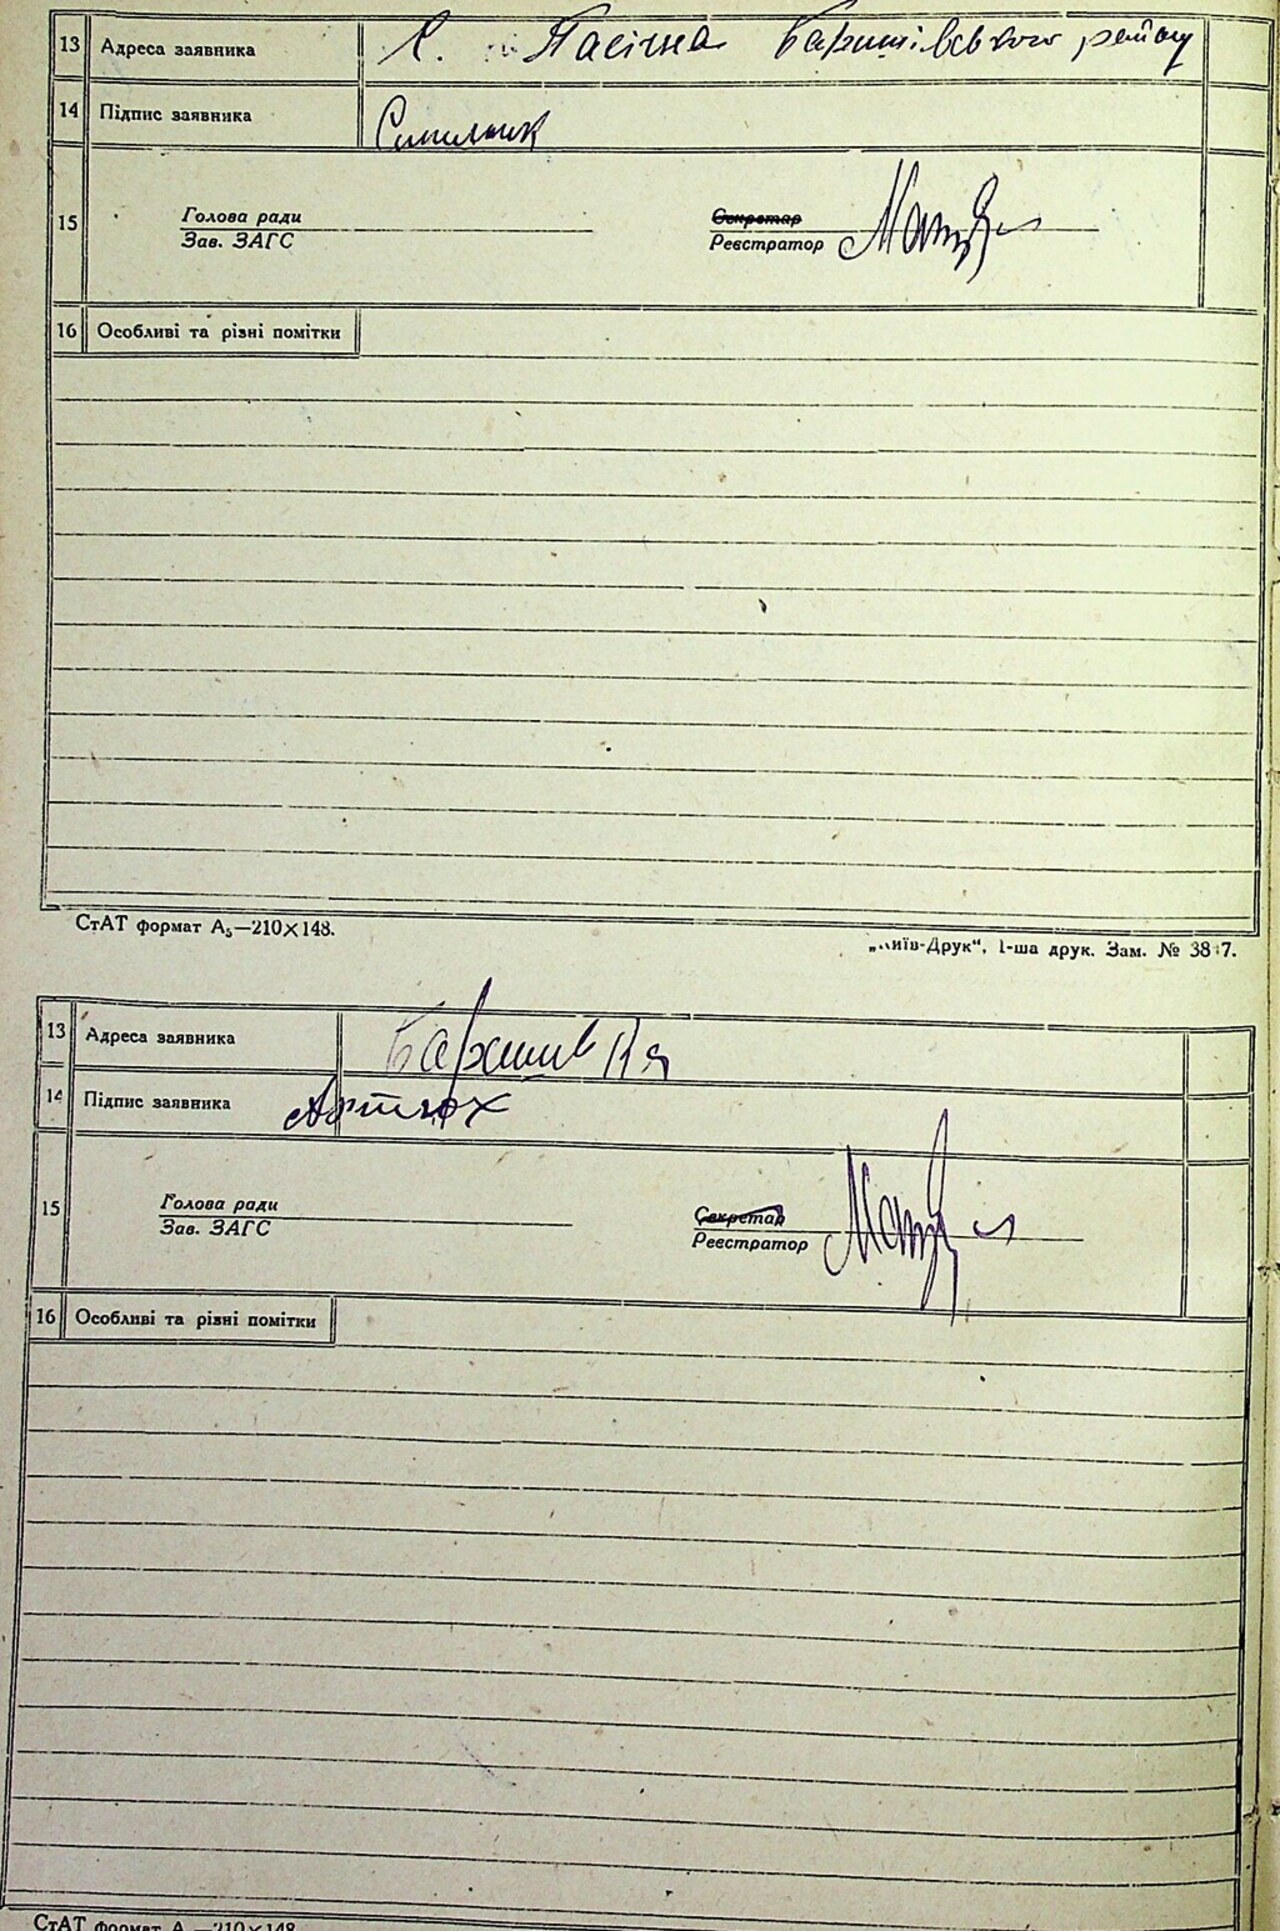 13 Адреса заявника С. Пасічна Баришівського району
14 Підпис заявника
15 Голова ради Секретар
Зав. ЗАГС Реєстратор
16 Особливі та різні помітки
СтАТ формат А₅—210×148.
„Київ-Друк“, 1-ша друк. Зам. №
13 Адреса заявника Баришівка
14 Підпис заявника Артюх
15 Голова ради Секретар
Зав. ЗАГС Реєстратор
16 Особливі та різні помітки
СтАТ формат А —210×148